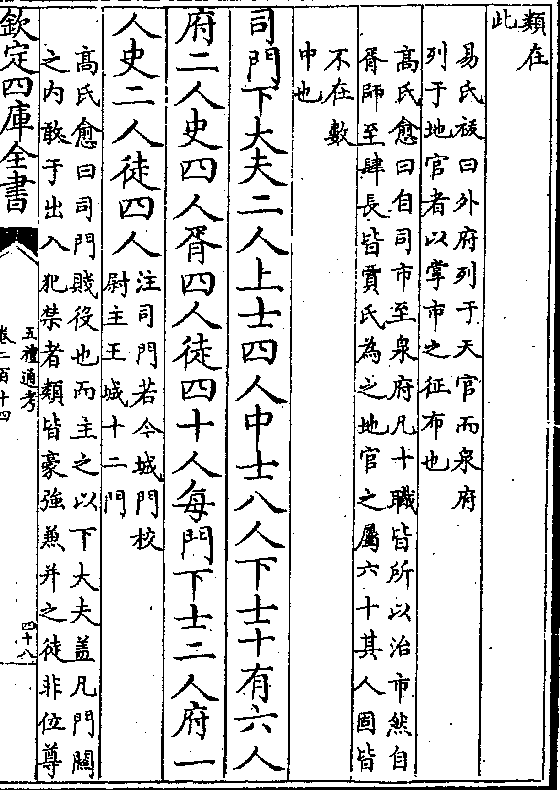 類在
此
易氏祓曰外府列于天官而泉府
列于地官者以掌市之征布也
高氏愈曰自司市至泉府凡十職皆所以治市然自
胥師至肆長皆賈氏為之地官之屬六十其人固皆
不在數
中也
司門下大夫二人上士四人中士八人下士十有六人
府二人史四人胥四人徒四十人每門下士二人府一
人史二人徒四人
注司門若今城門校
尉主王城十二門
高氏愈曰司門賤役也而主之以下大夫葢凡門關
之内敢于出入犯禁者類皆豪強兼并之徒非位尊
欽定四庫全書
五禮通考
卷二百十四
四十八